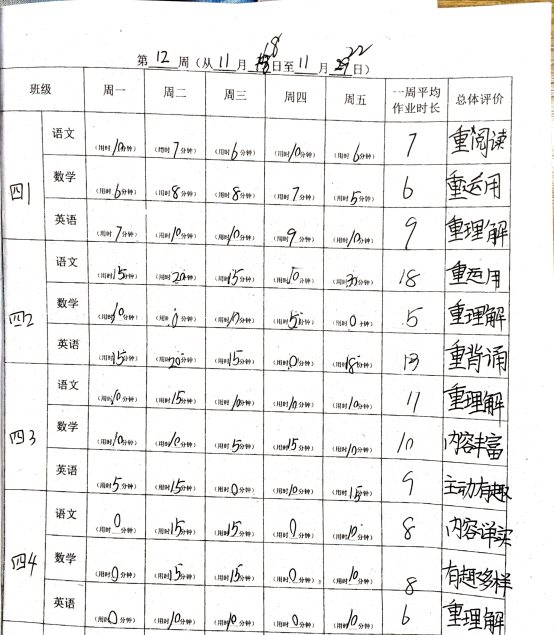 第 12 周（从 11 月 18 日至 11 月 22 日）
班级 周一 周二 周三 周四 周五 一周平均作业时长 总体评价
四1 语文 （用时10分钟） （用时7分钟） （用时6分钟） （用时10分钟） （用时6分钟） 7 重阅读
数学 （用时6分钟） （用时8分钟） （用时8分钟） （用时7分钟） （用时5分钟） 6 重运用
英语 （用时7分钟） （用时10分钟） （用时10分钟） （用时9分钟） （用时10分钟） 9 重理解
四2 语文 （用时15分钟） （用时20分钟） （用时15分钟） （用时10分钟） （用时30分钟） 18 重运用
数学 （用时10分钟） （用时0分钟） （用时10分钟） （用时5分钟） （用时0分钟） 5 重理解
英语 （用时15分钟） （用时20分钟） （用时15分钟） （用时0分钟） （用时18分钟） 13 重背诵
四3 语文 （用时10分钟） （用时15分钟） （用时10分钟） （用时10分钟） （用时10分钟） 11 重理解
数学 （用时10分钟） （用时10分钟） （用时5分钟） （用时15分钟） （用时10分钟） 10 内容丰富
英语 （用时5分钟） （用时15分钟） （用时0分钟） （用时10分钟） （用时15分钟） 9 主动有趣
四4 语文 （用时0分钟） （用时15分钟） （用时15分钟） （用时0分钟） （用时10分钟） 8 内容详实
数学 （用时0分钟） （用时15分钟） （用时15分钟） （用时0分钟） （用时10分钟） 8 有趣多样
英语 （用时0分钟） （用时10分钟） （用时10分钟） （用时0分钟） （用时10分钟） 6 重理解